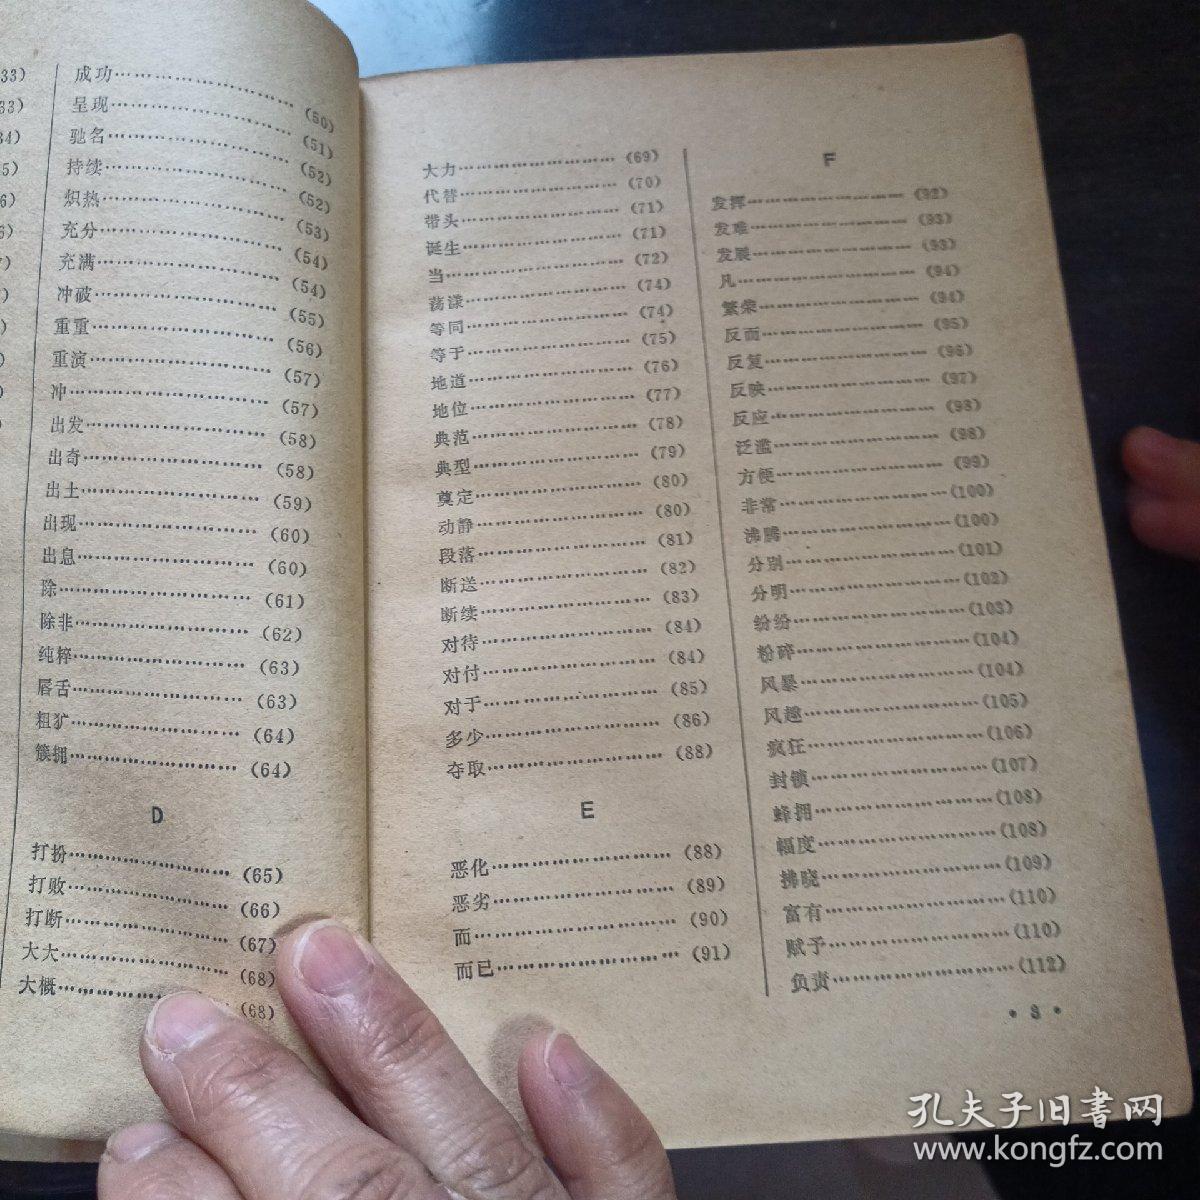 33)
63)
34)
5)
6)
6)
7)
)
)
)
)
)
成功……………………(50)
呈现……………………(51)
驰名……………………(52)
持续……………………(52)
炽热……………………(53)
充分……………………(54)
充满……………………(54)
冲破……………………(55)
重重……………………(56)
重演……………………(57)
冲……………………(57)
出发……………………(58)
出奇……………………(58)
出土……………………(59)
出现……………………(60)
出息……………………(60)
除……………………(61)
除非……………………(62)
纯粹……………………(63)
唇舌……………………(63)
粗犷……………………(64)
簇拥……………………(64)
D
打扮……………………(65)
打败……………………(66)
打断……………………(67)
大大……………………(68)
大概……………………(68)
大力……………………(69)
代替……………………(70)
带头……………………(71)
诞生……………………(71)
当……………………(72)
荡漾……………………(74)
等同……………………(74)
等于……………………(75)
地道……………………(76)
地位……………………(77)
典范……………………(78)
典型……………………(79)
奠定……………………(80)
动静……………………(80)
段落……………………(81)
断送……………………(82)
断续……………………(83)
对待……………………(84)
对付……………………(84)
对于……………………(85)
多少……………………(86)
夺取……………………(88)
E
恶化……………………(88)
恶劣……………………(89)
而……………………(90)
而已……………………(91)
F
发挥……………………(92)
发难……………………(93)
发展……………………(93)
凡……………………(94)
繁荣……………………(94)
反而……………………(95)
反复……………………(96)
反映……………………(97)
反应……………………(98)
泛滥……………………(98)
方便……………………(99)
非常……………………(100)
沸腾……………………(100)
分别……………………(101)
分明……………………(102)
纷纷……………………(103)
粉碎……………………(104)
风暴……………………(104)
风趣……………………(105)
疯狂……………………(106)
封锁……………………(107)
蜂拥……………………(108)
幅度……………………(108)
拂晓……………………(109)
富有……………………(110)
赋予……………………(110)
负责……………………(112)
• 3 •
孔夫子旧書网
www.kongfz.com